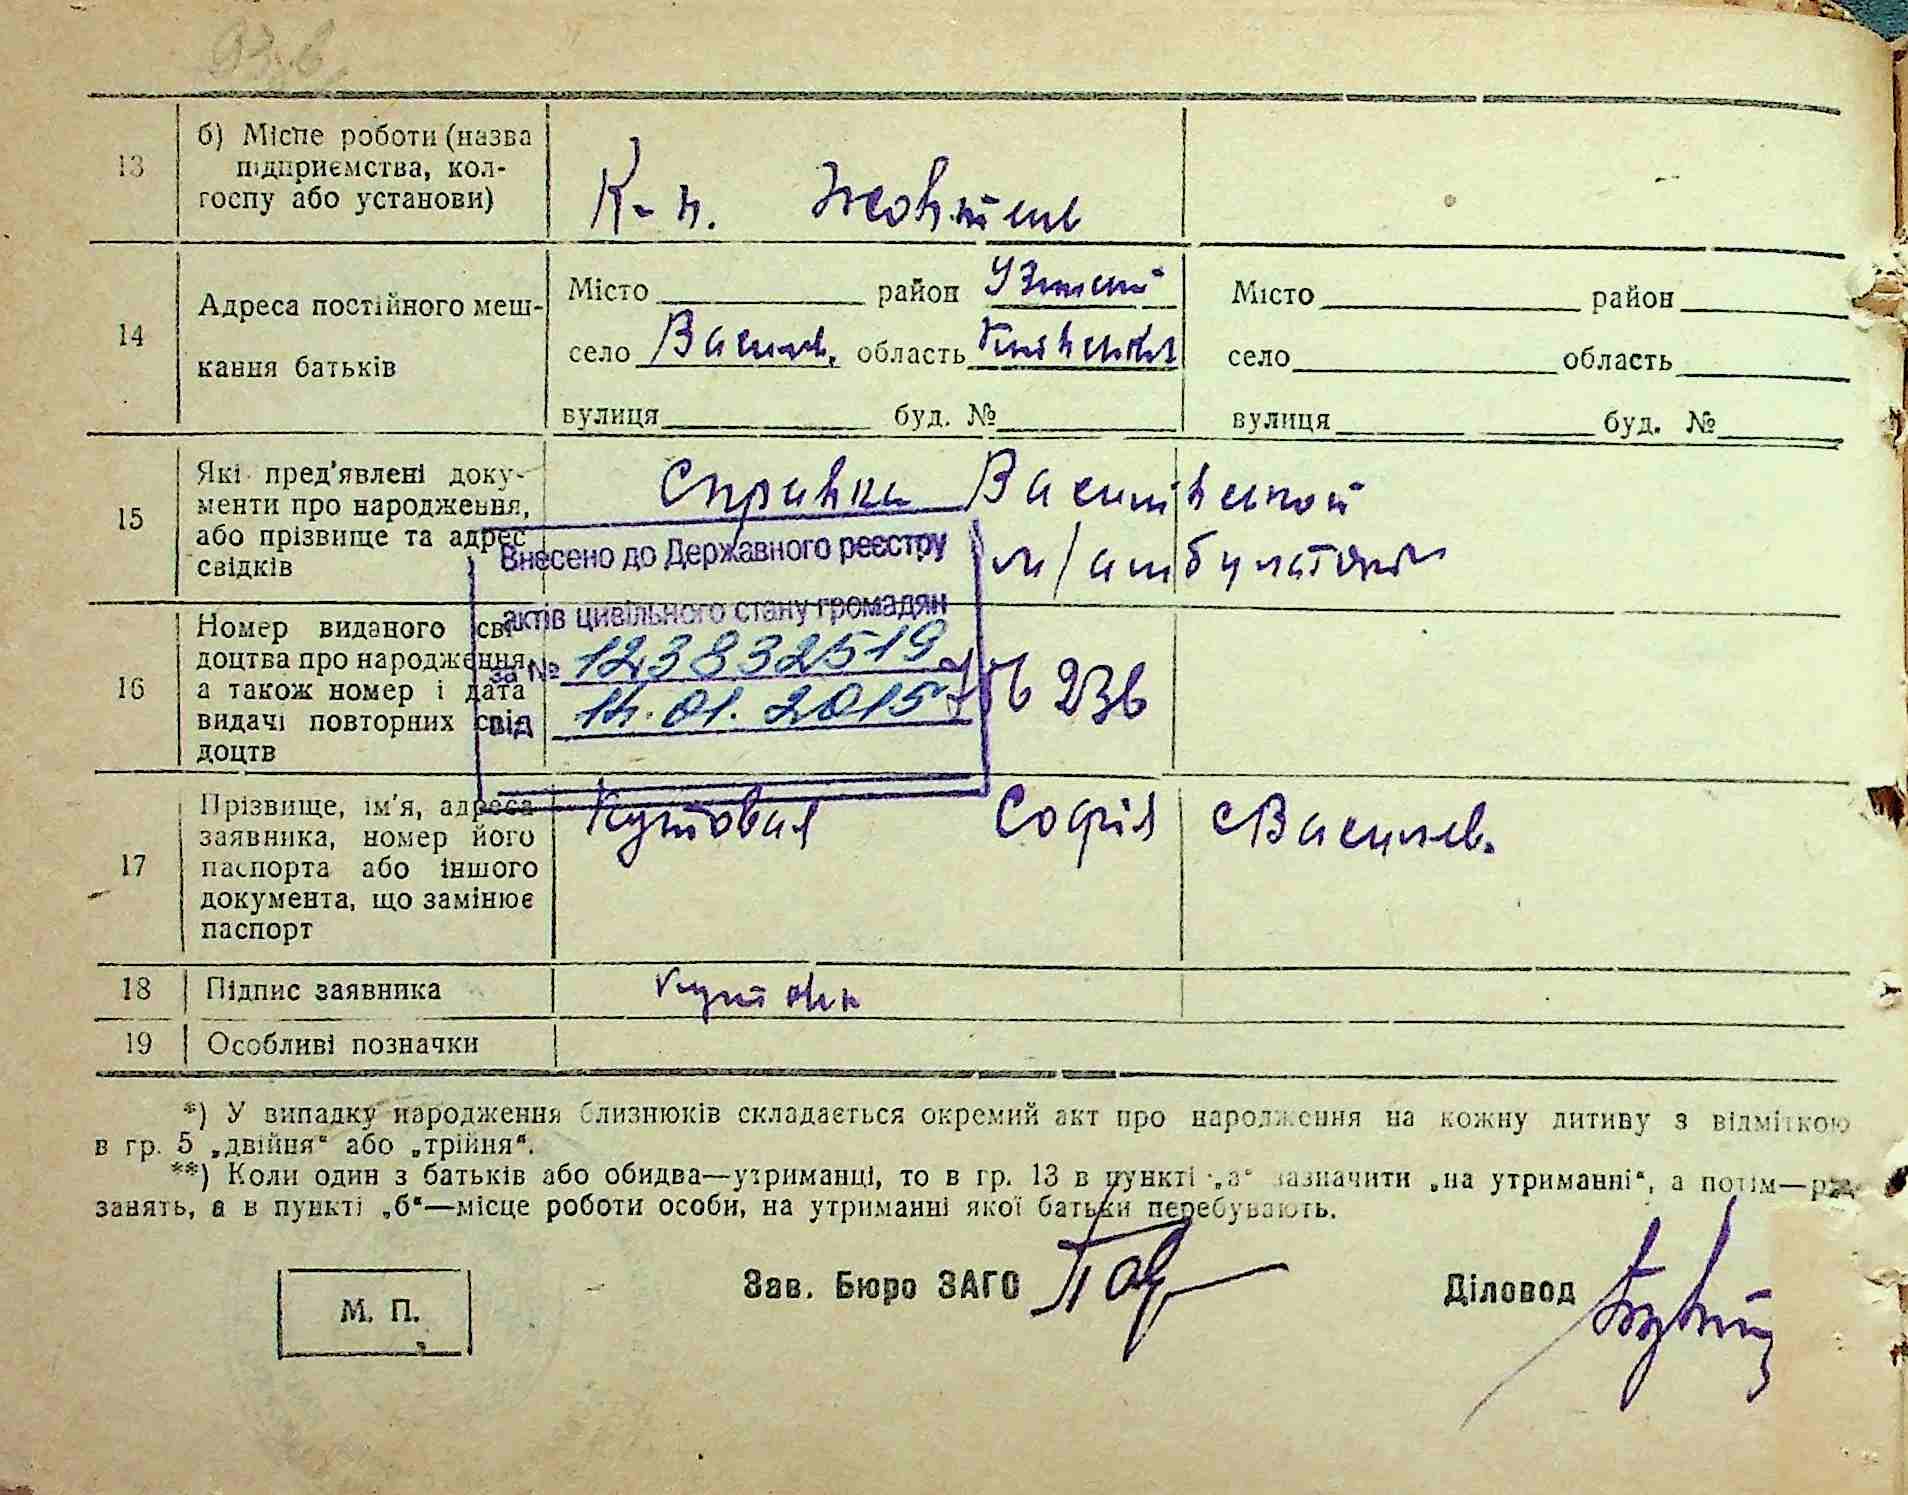 13
б) Місце роботи (назва
підприємства, кол-
госпу або установи)
К-п. Жовтень
14
Адреса постійного меш-
кання батьків
Місто район Узинский
село Васильев. область Київська
вулиця буд. №
Місто район
село область
вулиця буд. №
15
Які пред'явлені доку-
менти про народження,
або прізвище та адрес
свідків
Справка Василівської
м/амбулаторії
Внесено до Державного реєстру
актів цивільного стану громадян
за № 123832519
від 14.01.2015
16
Номер виданого сві-
доцтва про народження,
а також номер і дата
видачі повторних сві-
доцтв
236
17
Прізвище, ім'я, адреса
заявника, номер його
паспорта або іншого
документа, що замінює
паспорт
Кутовая Софія с Васильев.
18
Підпис заявника
Кутовая
19
Особливі позначки
*) У випадку народження близнюків складається окремий акт про народження на кожну дитину з відміткою
в гр. 5 „двійня“ або „трійня“.
**) Коли один з батьків або обидва—утриманці, то в гр. 13 в пункті „а“ зазначити „на утриманні“, а потім—рід
занять, а в пункті „б“—місце роботи особи, на утриманні якої батьки перебувають.
М. П.
Зав. Бюро ЗАГС
Діловод